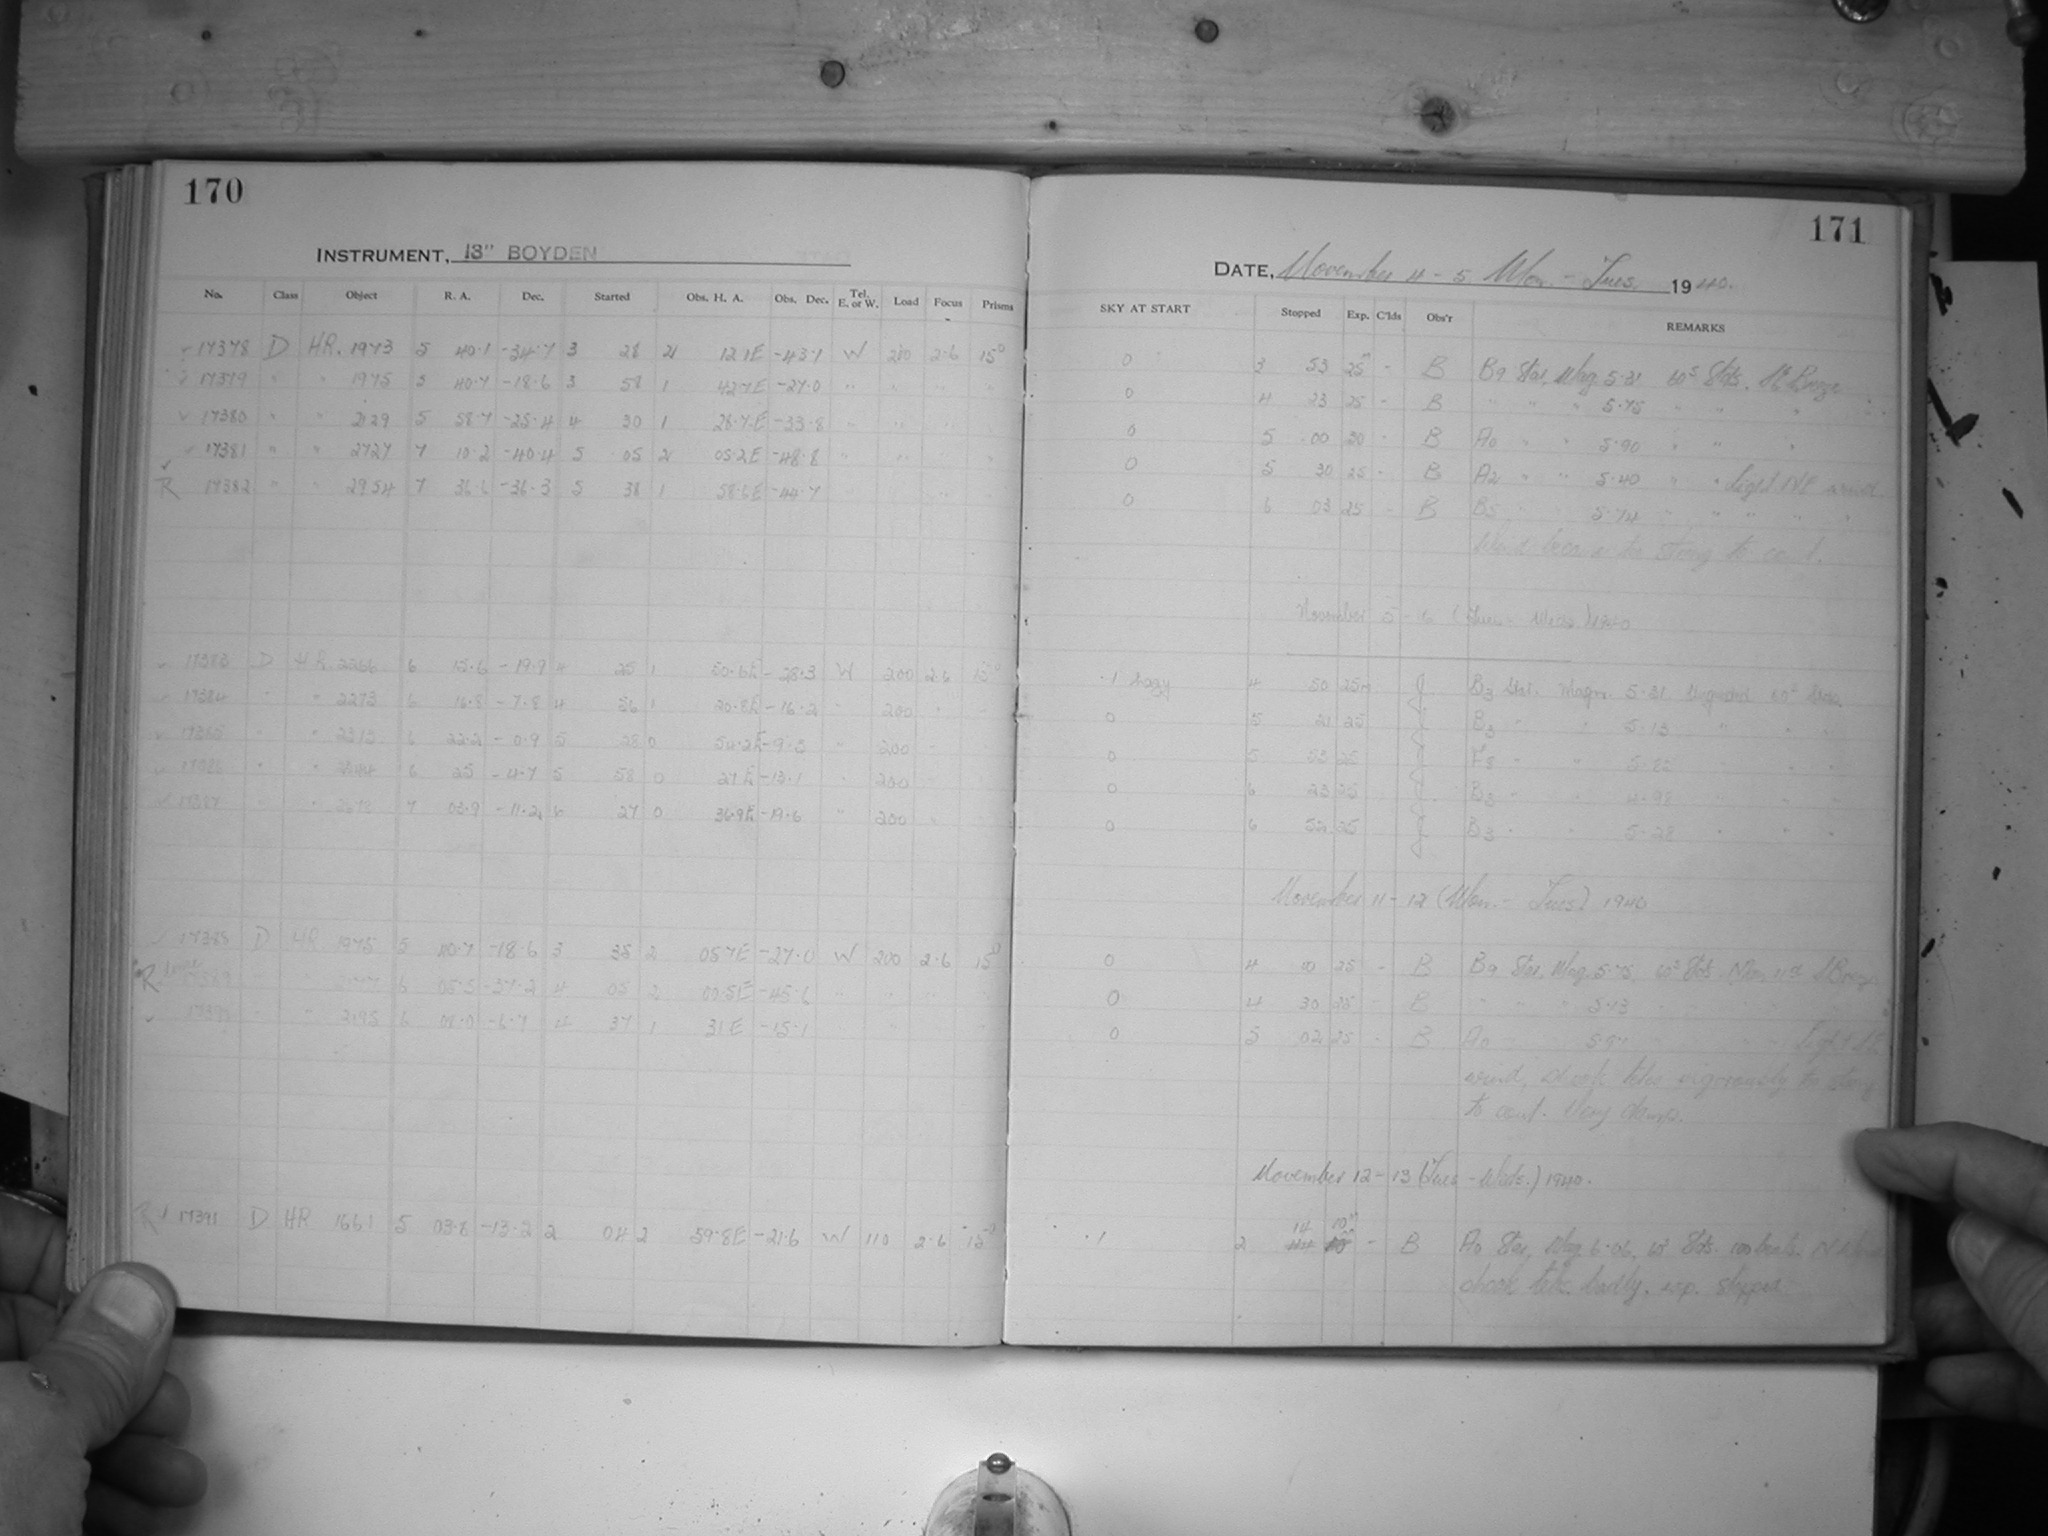 170
INSTRUMENT, 13" BOYDEN
No. Class Object R. A. Dec. Started Obs. H. A. Obs. Dec. Tel. E. or W. Load Focus Prisms
17378 D HR. 1973 5 40.1 -34.7 3 28 2 12.1E -43.1 W 200 2.6 15°
17379 " " 1975 5 40.7 -18.6 3 58 1 42.7E -27.0 " " " "
17380 " " 2129 5 58.7 -25.4 4 30 1 28.7E -33.8 " " " "
17381 " " 2727 7 10.2 -40.4 5 05 2 05.2E -48.8 " " "
R 17382 " " 2954 7 36.6 -36.3 5 38 1 58.6E -44.7
17383 D HR 2266 6 15.6 -19.9 4 25 1 50.6E -28.3 W 200 2.6 15°
17384 " " 2273 6 16.8 -7.8 4 56 1 20.8E -16.2 " 200
17385 " " 2313 6 22.2 -0.9 5 28 0 54.2E -9.3 " 200
17386 " " 6 25 -4.7 5 58 0 27E -13.1 " 200
17387 " " 7 03.9 -11.2 6 27 0 36.9E -19.6 " 200
17388 D HR 1975 5 40.7 -18.6 3 35 2 05.7E -27.0 W 200 2.6 15°
R 17389 " " 6 05.5 -37.2 4 05 2 00.5E -45.6 " " " "
17390 " " 2195 6 08.0 -6.7 4 37 1 31E -15.1 " "
R 17391 D HR 1661 5 03.8 -13.2 2 04 2 59.8E -21.6 W 110 2.6 15°
171
DATE, November 4 - 5 Mon. - Tues. 1940.
SKY AT START Stopped Exp. C'lds Obs'r REMARKS
0 3 53 25m - B B9 Star, Mag. 5.21 60s Stds. Breeze
0 4 23 25 - B " " " 5.75 " " "
0 5 00 30 - B A0 " " 5.90 " " "
0 5 30 25 - B A2 " " 5.40 " " light NE wind
0 6 03 25 - B B5 " " 5.74 " " " " "
Wind became too strong to cont.
November 5 - 6 (Tues - Weds) 1940
.1 hazy 4 50 25m J B3 Star. Magn. 5.31 60s Stds.
0 5 21 25 J B3 " " 5.13 " " "
0 5 53 25 J F8 " " 5.22 " " "
0 6 23 25 J B3 " " 4.98 " " "
0 6 52 25 J B3 " " 5.28 " " "
November 11 - 12 (Mon. - Tues) 1940
0 4 00 25 - B B9 Star, Mag. 5.75, 60s Stds Breeze
0 4 30 25 - B " " " 5.43
0 5 02 25 - B A0 light
wind, shook tele vigorously too strong
to cont. Very damp.
November 12 - 13 (Tues - Weds.) 1940.
.1 2 14 10m - B A0 Star, Mag 6.06, 60s Stds. N Wind
shook tele. badly, exp. stopped